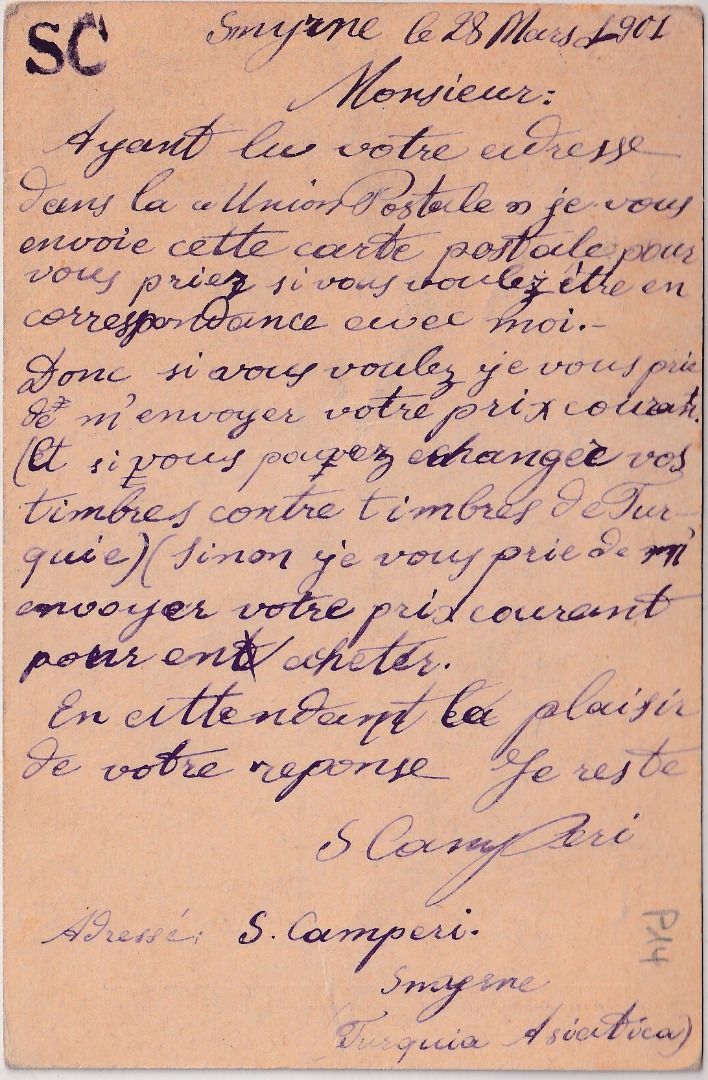 SC
Smyrne le 28 Mars 1901
Monsieur:
Ayant lu votre adresse
dans la « Union Postale » je vous
envoie cette carte postale pour
vous priez si vous voulez être en
correspondance avec moi.-
Donc si vous voulez je vous prie
de m'envoyer votre prix courant.
(Et si vous pouvez echanger vos
timbres contre timbres de Tur-
quie) (Sinon je vous prie de m'
envoyer votre prix courant
pour en acheter.
En attendant la plaisir
de votre reponse Je reste
S Camperi
Adressé: S. Camperi.
Smyrne
(Turquia Asiatica)
P14